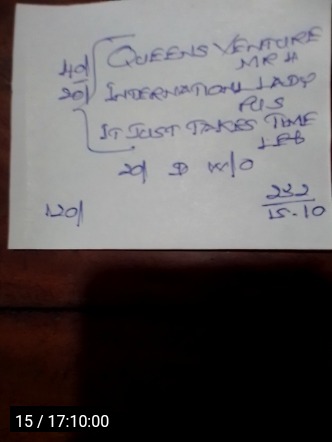 40/ QUEENS VENTURE
MR H
20/ INTERNATIONL LADY
RIS
IT JUST TAKES TIME
LEO
20/ D W/O
120/
232
15-10
15 / 17:10:00